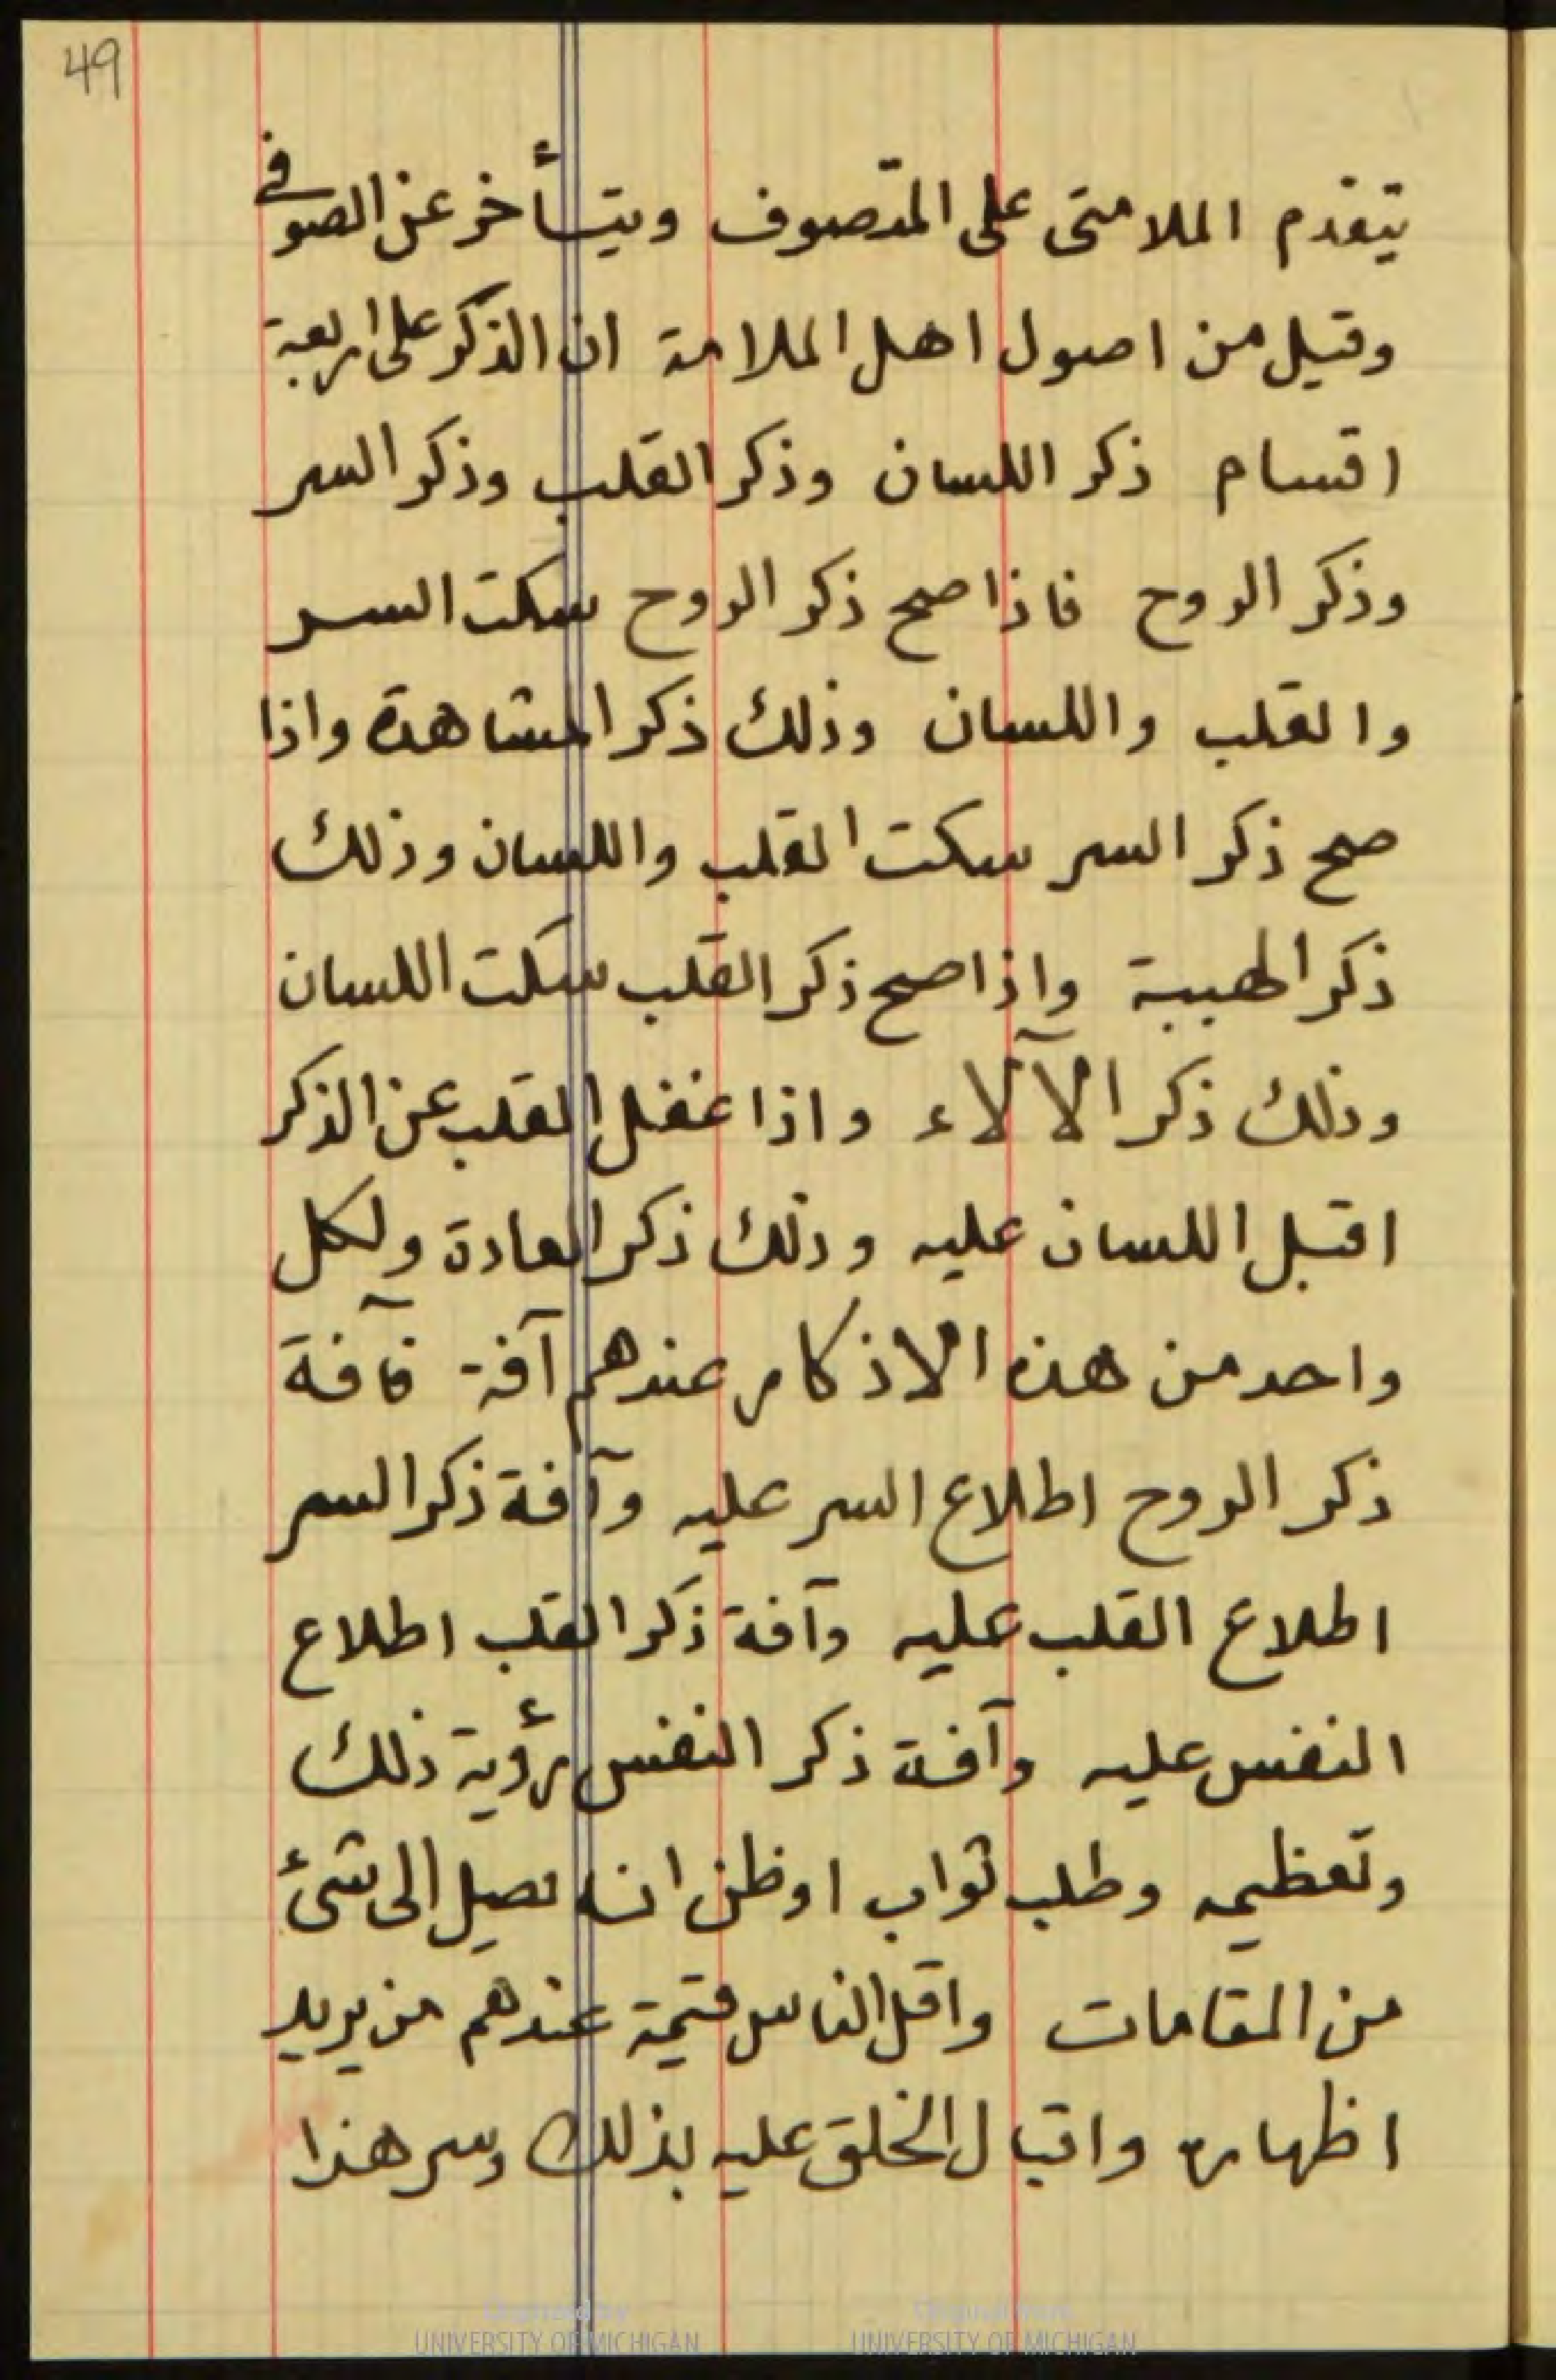 49
يتقدم الملامتى على المتصوف ويتأخر عن الصوفى
وقيل من اصول اهل الملامة ان الذكر على اربعة
اقسام ذكر اللسان وذكر القلب وذكر السر
وذكر الروح فاذا صح ذكر الروح سكت السر
والقلب واللسان وذلك ذكر المشاهدة واذا
صح ذكر السر سكت القلب واللسان وذلك
ذكر الهيبة واذا صح ذكر القلب سكت اللسان
وذلك ذكر الآلاء واذا غفل القلب عن الذكر
اقبل اللسان عليه وذلك ذكر العادة ولكل
واحد من هذه الاذكار عندهم آفة فآفة
ذكر الروح اطلاع السر عليه وآفة ذكر السر
اطلاع القلب عليه وآفة ذكر القلب اطلاع
النفس عليه وآفة ذكر النفس رؤية ذلك
وتعظيمه وطلب ثواب او ظن انه يصل الى شئ
من المقامات واقل الناس قيمة عندهم من يريد
اظهاره واقبال الخلق عليه بذلك وسر هذا
Digitized by
UNIVERSITY OF MICHIGAN
Original from
UNIVERSITY OF MICHIGAN